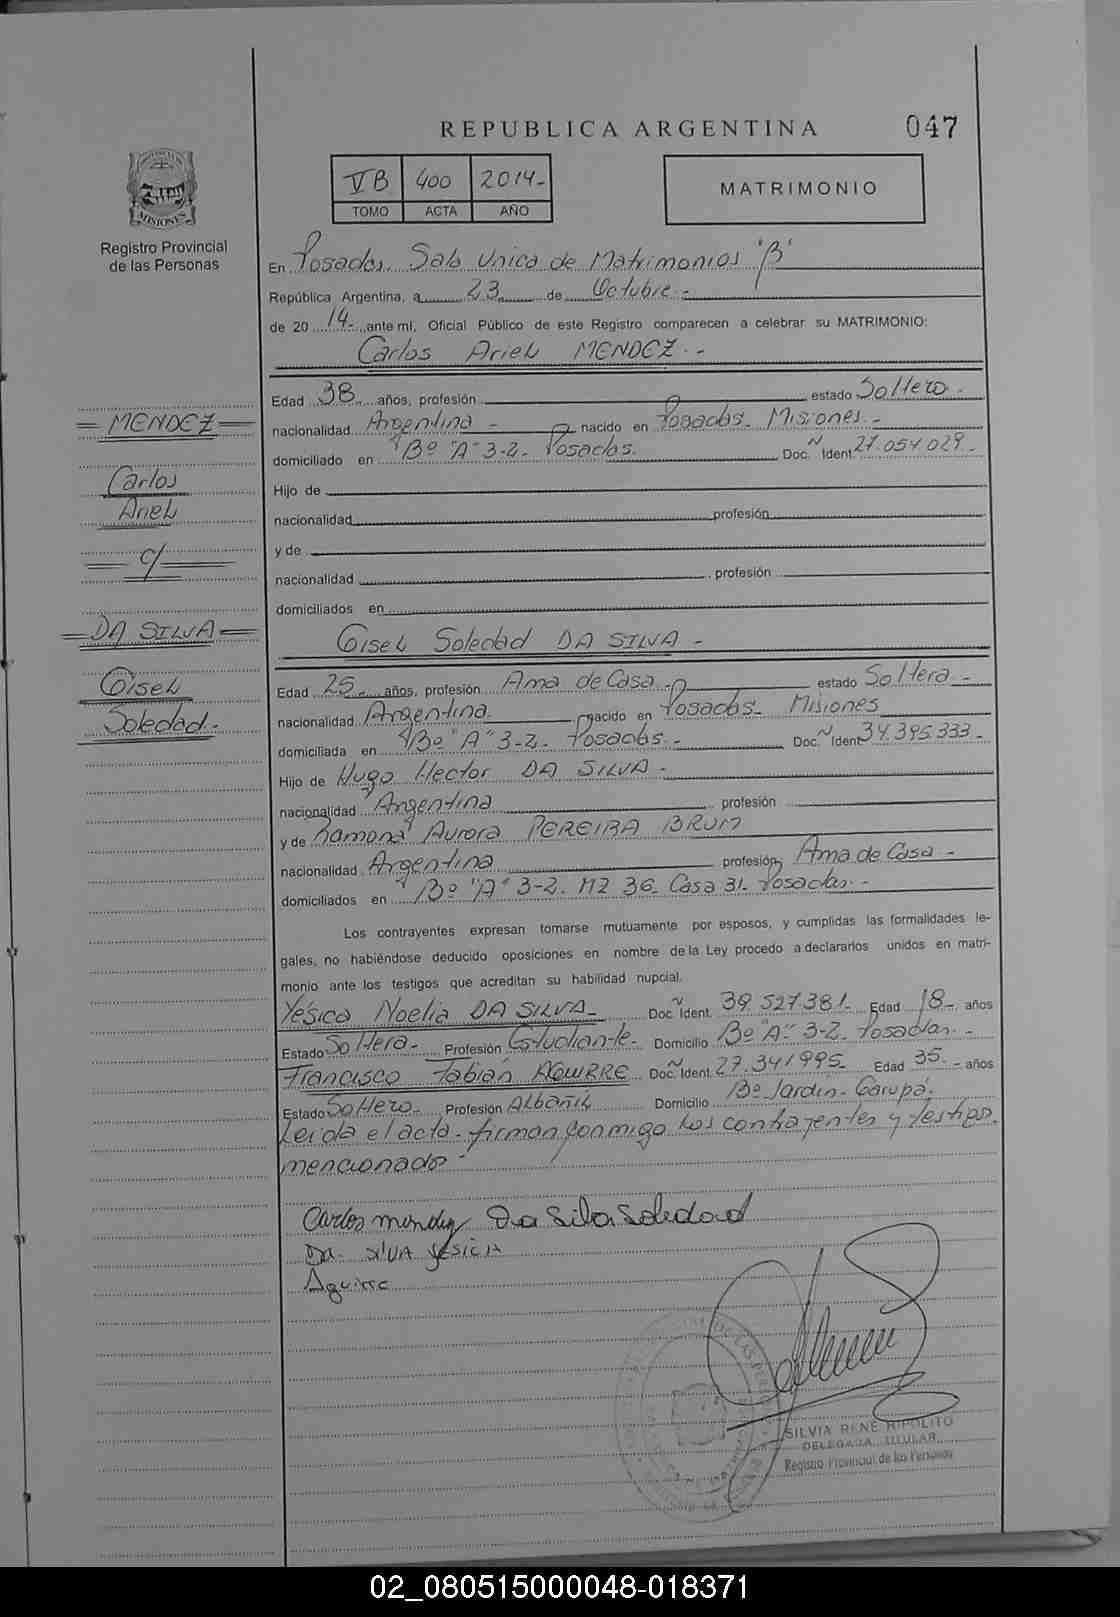 REPUBLICA ARGENTINA 047
VB 400 2014-
TOMO ACTA AÑO
MATRIMONIO
MISIONES
Registro Provincial
de las Personas
En Posadas. Sala Unica de Matrimonios "B"
República Argentina, a 23 de Octubre -
de 20 14- ante mí, Oficial Público de este Registro comparecen a celebrar su MATRIMONIO:
Carlos Ariel MENDEZ. -
Edad 38 años, profesión estado Soltero -
nacionalidad Argentina - nacido en Posadas. Misiones. -
domiciliado en Bº "A" 3-2. Posadas. Doc. Ident. 27.054.029 -
Hijo de
nacionalidad profesión
y de
nacionalidad profesión
domiciliados en
Gisel Soledad DA SILVA -
Edad 25 años, profesión Ama de Casa - estado Soltera -
nacionalidad Argentina. nacido en Posadas - Misiones
domiciliada en Bº "A" 3-2. Posadas. - Doc. Ident 34.395.333 -
Hijo de Hugo Hector DA SILVA -
nacionalidad Argentina profesión
y de Ramona Aurora PEREIRA BRUM
nacionalidad Argentina profesión Ama de Casa -
domiciliados en Bº "A" 3-2. MZ 36. Casa 31. Posadas. -
Los contrayentes expresan tomarse mutuamente por esposos, y cumplidas las formalidades le-
gales, no habiéndose deducido oposiciones en nombre de la Ley procedo a declararlos unidos en matri-
monio ante los testigos que acreditan su habilidad nupcial.
Yésica Noelia DA SILVA - Doc. Ident. 39.527.381 - Edad 18 - años
Estado Soltera - Profesión Estudiante - Domicilio Bº "A" 3-2. Posadas. -
Francisco Fabián AGUIRRE Doc. Ident. 27.341995 - Edad 35 - años
Estado Soltero - Profesión Albañil Domicilio Bº Jardin - Garupá.
Leida el acta - firman conmigo los contrayentes y testigos
mencionado -
MENDEZ
Carlos
Ariel
c/
DA SILVA
Gisel
Soledad -
Carlos mendez Da Silva Soledad
DA SILVA YESICA
Aguirre
SILVIA RENÉ HIPOLITO
DELEGADA TITULAR
Registro Provincial de las Personas
02_080515000048-018371